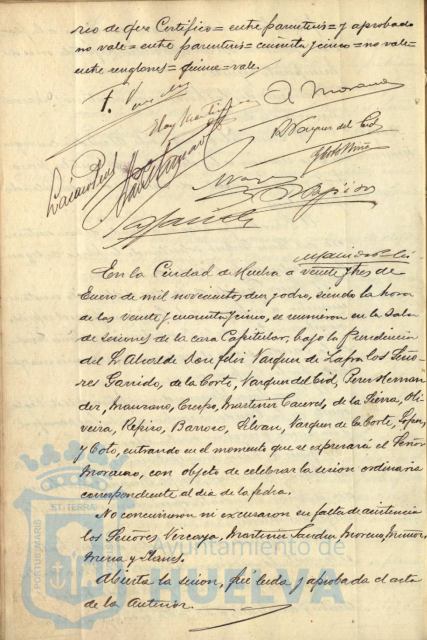 rio de que Certifico = entre parentesis = y aprobada
no vale = entre parentesis = cincuenta y cinco = no vale =
entre renglones = quince = vale.
A. Moreno
R. Vazquez del Cid
En la Ciudad de Huelva a veinte y tres de
Enero de mil novecientos diez y ocho, siendo la hora
de las veinte y cuarenta y cinco, se reunieron en la Sala
de sesiones de la casa Capitular, bajo la Presidencia
del Sr Alcalde Don Felix Vazquez de Zafra los Seño-
res Garrido, de la Corte, Vazquez del Cid, Perez Hernan
dez, Manzano, Crespo, Martinez de la Tierra, Oli-
veira, Repiso, Barroso, Vazquez de la Corte, Lopez
y Coto, entrando en el momento que se expresará el Señor
Moreno, con objeto de celebrar la sesion ordinaria
correspondiente al dia de la fecha.
No concurrieron ni excusaron su falta de asistencia
los Señores Vizcaya, Martinez Sanchez, Moreno, Muñoz,
Mesa y Llanes.
Abierta la sesion, fué leida y aprobada el acta
de la anterior.
PORTUS MARIS
ET TERRÆ
Ayuntamiento de
HUELVA